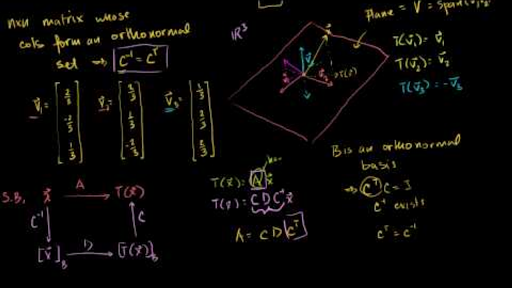 nxn matrix whose
cols form an orthonormal
set ⇒ C⁻¹ = Cᵀ
v₁ = [2/3 -2/3 1/3]
v₂ = [2/3 1/3 -2/3]
v₃ = [1/3 2/3 2/3]
ℝ³
Plane = V = Span(v₁, v₂)
T(v₁) = v₁
T(v₂) = v₂
T(v₃) = -v₃
S.B. x A T(x)
C⁻¹ C
[x]B D [T(x)]B
T(x) = A x
T(x) = C D C⁻¹ x
A = C D Cᵀ
B is an orthonormal
basis
⇒ Cᵀ C = I
C⁻¹ exists
Cᵀ = C⁻¹